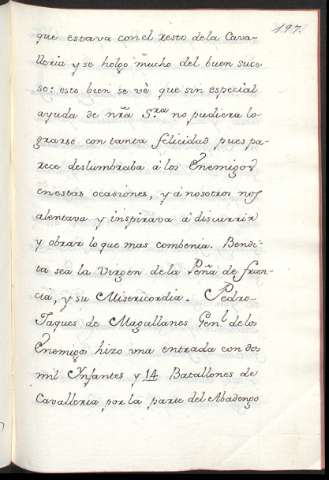 197.
que estava con el resto de la Cava-
lleria y se holgo m̃ucho del buen suce
so: esto bien se vè que sin especial
ayuda de nr̃a S.ra no pudiera lo
grarse con tanta felicidad pues pa-
rece deslumbraba á los Enemigos
en estas ocasiónes, y á nosotros nos
alentava y inspirava á discurrir
y obrar lo que mas combenia. Bendi-
ta sea la Virgen de la Peña de fran-
cia, y su Misericordia. Pedro-
Jaques de Magallanes Gen.l de los
Enemigos hizo una entrada con dos
mil Infantes y 14 Batallones de
Cavalleria por la parte del Abadengo